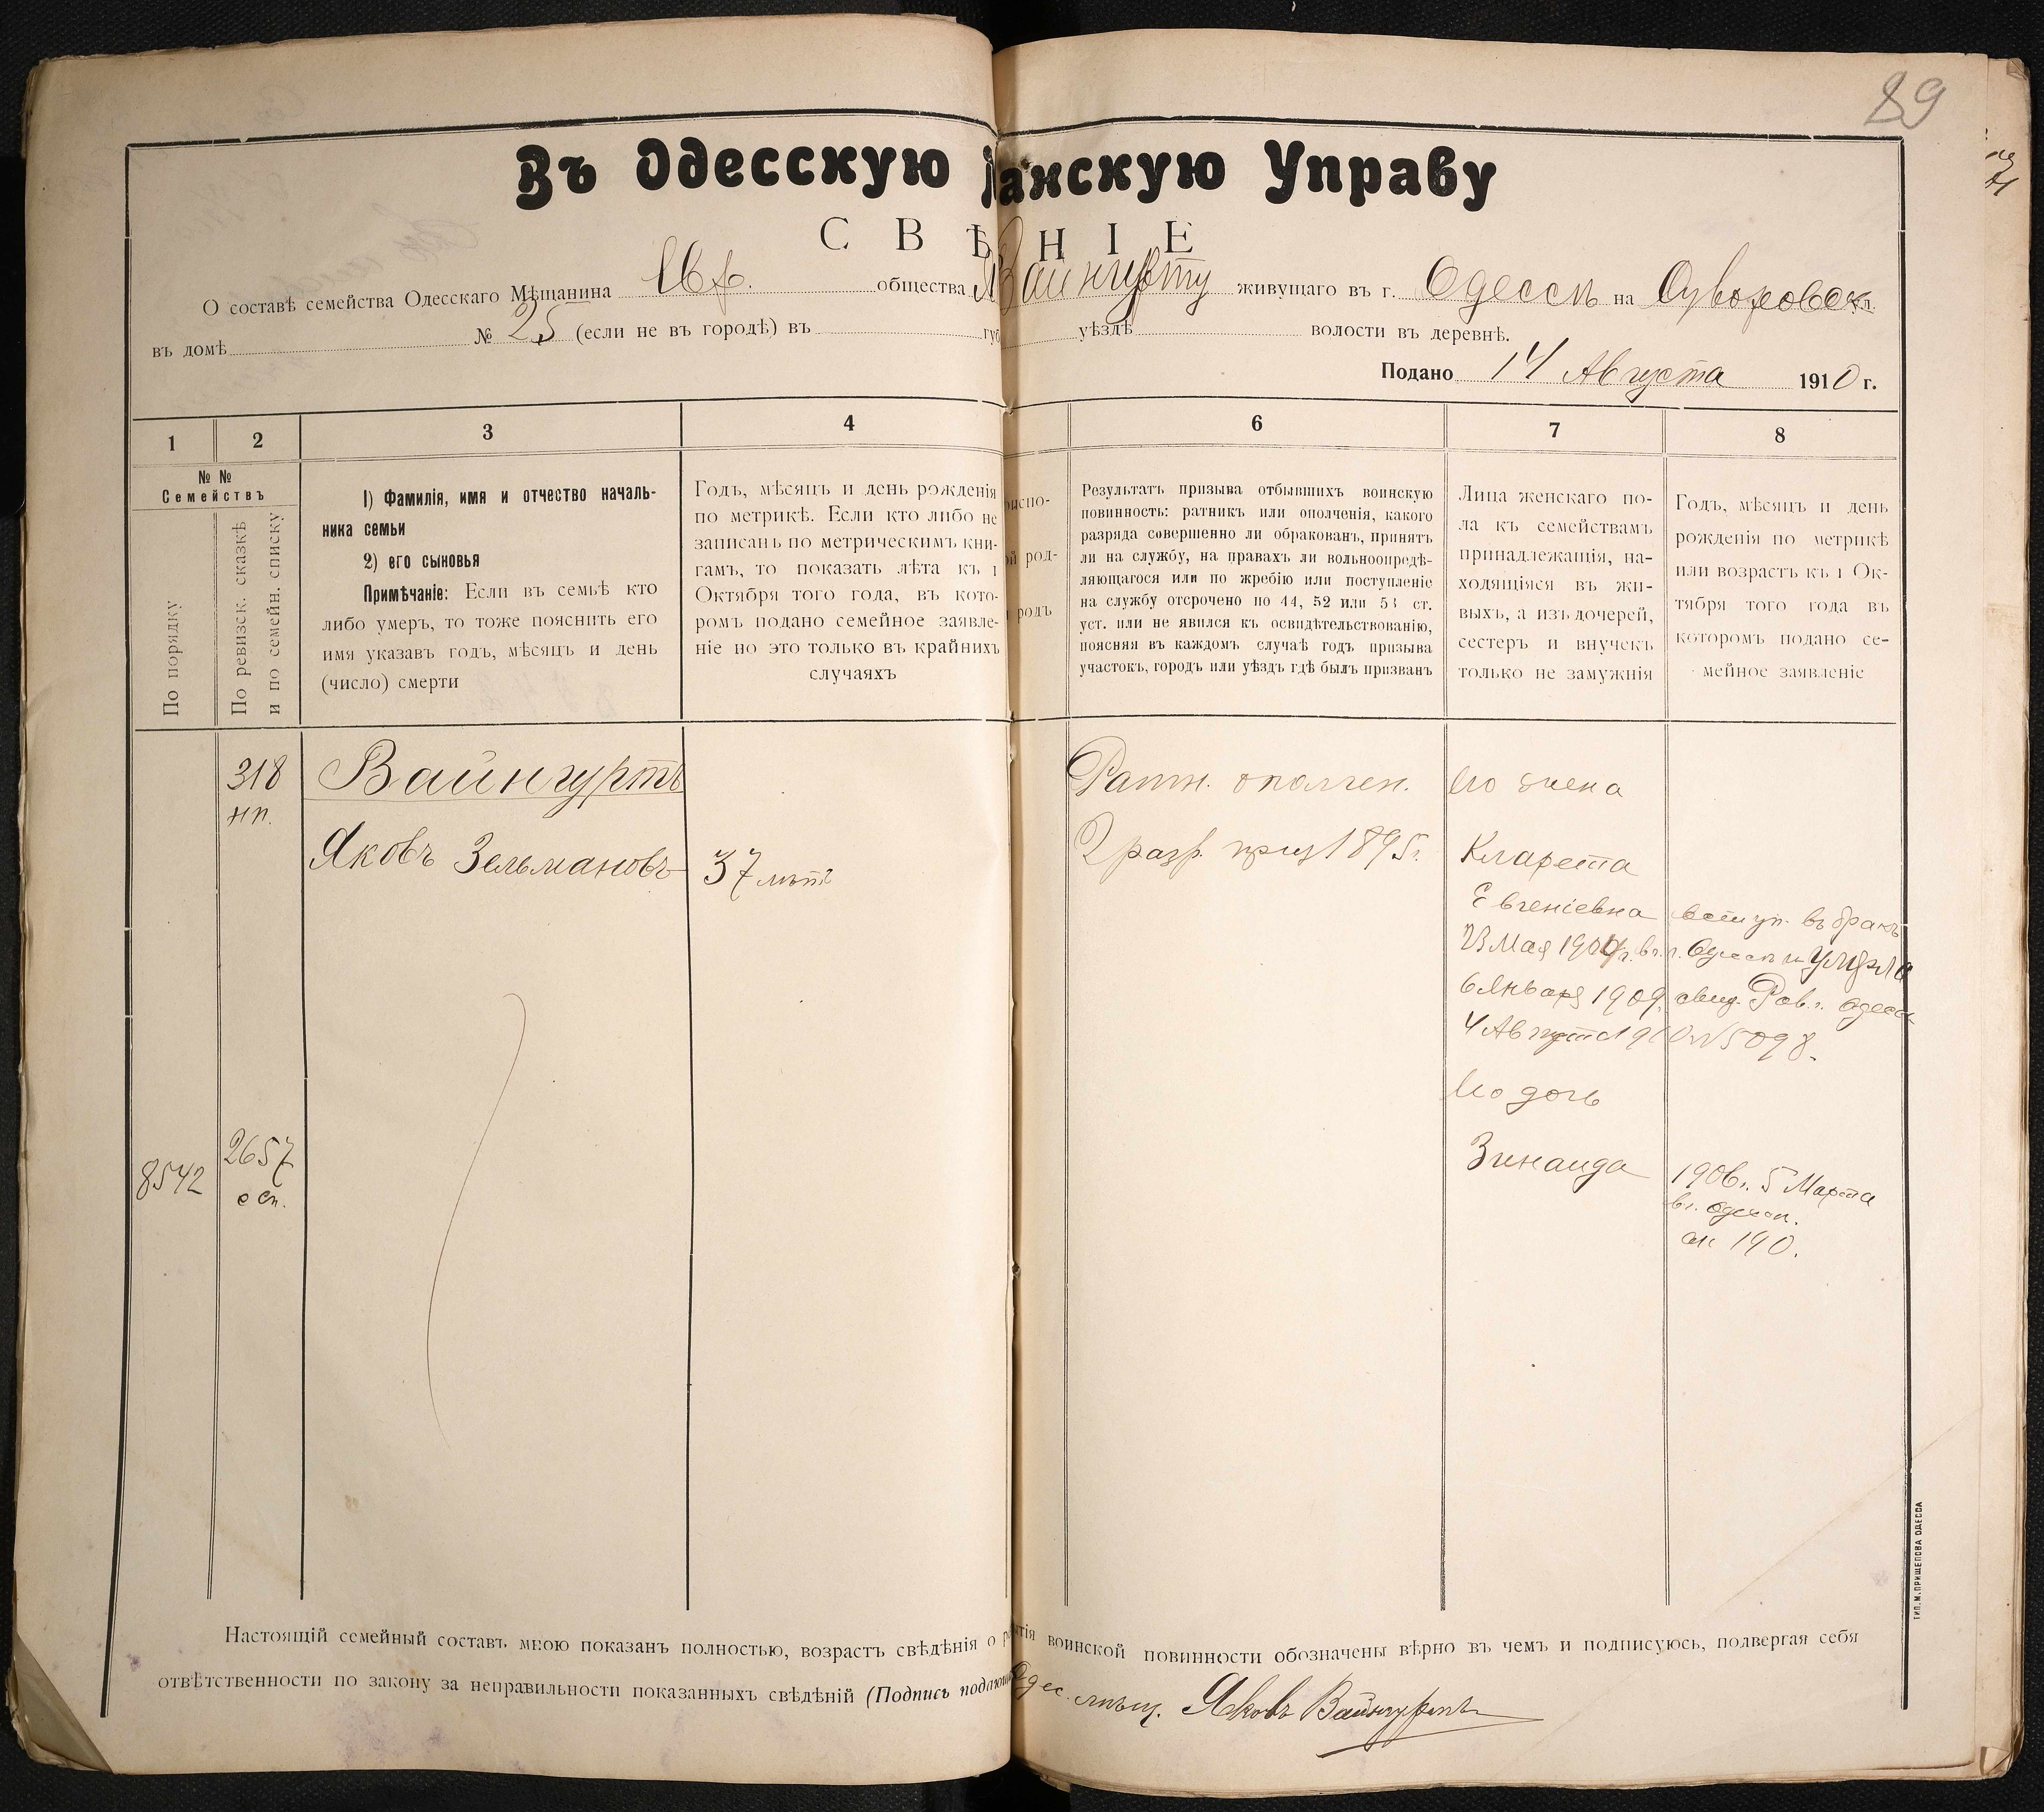 89
Въ Одесскую анскую Управу
СВѢ НІЕ
О составѣ семейства Одесскаго Мѣщанина Евр. общества Я Вайнгурту живущаго въ г. Одессѣ на Суворовск ул.
въ домѣ № 25 (если не въ городѣ) въ губ уѣздѣ волости въ деревнѣ.
Подано 14 Августа 1910 г.
1 2 3 4 6 7 8
№ №
Семействъ
По порядку
По ревизск. сказкѣ
и по семейн. списку
1) Фамилія, имя и отчество началь-
ника семьи
2) его сыновья
Примѣчаніе: Если въ семьѣ кто
либо умеръ, то тоже пояснить его
имя указавъ годъ, мѣсяцъ и день
(число) смерти
Годъ, мѣсяцъ и день рожденія
по метрикѣ. Если кто либо не
записанъ по метрическимъ кни-
гамъ, то показать лѣта къ 1
Октября того года, въ кото-
ромъ подано семейное заявле-
ніе но это только въ крайнихъ
случаяхъ
писно-
ой род-
родъ
Результатъ призыва отбывшихъ воинскую
повинность: ратникъ или ополченія, какого
разряда совершенно ли обракованъ, принятъ
ли на службу, на правахъ ли вольноопредѣ-
ляющагося или по жребію или поступленіе
на службу отсрочено по 44, 52 или 53 ст.
уст. или не явился къ освидѣтельствованію,
поясняя въ каждомъ случаѣ годъ призыва
участокъ, городъ или уѣздъ гдѣ былъ призванъ
Лица женскаго по-
ла къ семействамъ
принадлежащія, на-
ходящіяся въ жи-
выхъ, а изъ дочерей,
сестеръ и внучекъ
только не замужнія
Годъ, мѣсяцъ и день
рожденія по метрикѣ
или возрастъ къ 1 Ок-
тября того года въ
которомъ подано се-
мейное заявленіе
318
нп.
Вайнгуртъ
Яковъ Зельмановъ
37 лѣтъ
Ратн. ополчен.
2 разр. приз 1895 г.
Его жена
Кларета
Евгеніевна вступ. въ бракъ
23 Мая 1904 г. въ г. Одессѣ и умерла
6 Января 1909 свид. Рав. г. Одессы
4 Августа 1910 № 5098.
Его дочь
8542
2657
с сп.
Зинаида
1906 г. 5 Марта
в г. Одессѣ.
ак 190.
Настоящій семейный составъ мною показанъ полностью, возрастъ свѣдѣнія о тія воинской повинности обозначены вѣрно въ чемъ и подписуюсь, полвергая себя
отвѣтственности по закону за неправильности показанныхъ свѣдѣній (Подпись подающ Одес. мѣщ. Яковъ Вайнгуртъ
ТИП. М. ПРИЩЕПОВА ОДЕССА